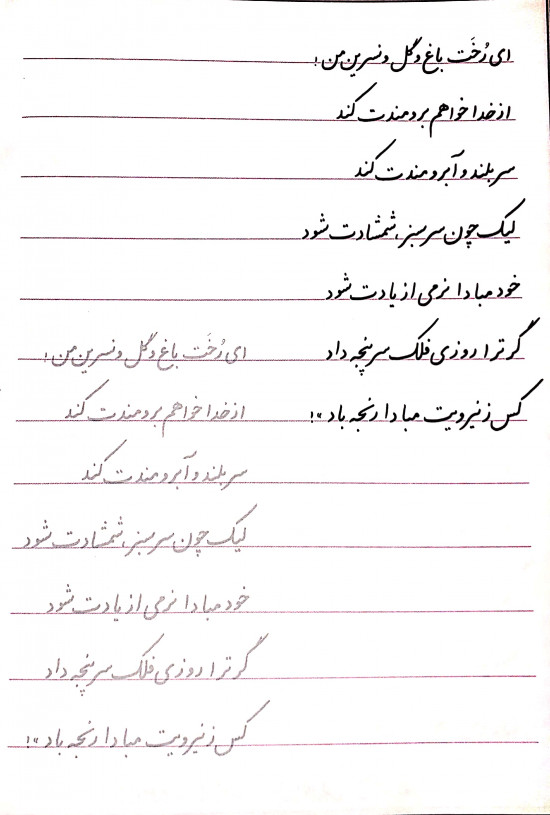 ای رُخَت باغ و گل و نسرین من!
از خدا خواهم برومندت کند
سربلند و آبرومندت کند
لیک چون سرسبز، شمشادت شود
خود مبادا نرمی از یادت شود
گر ترا روزی فلک سرپنجه داد
کس ز نیرویت مبادا رنجه باد"!
ای رُخَت باغ و گل و نسرین من!
از خدا خواهم برومندت کند
سربلند و آبرومندت کند
لیک چون سرسبز، شمشادت شود
خود مبادا نرمی از یادت شود
گر ترا روزی فلک سرپنجه داد
کس ز نیرویت مبادا رنجه باد"!